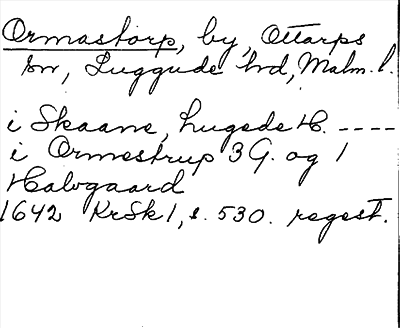 Ormastorp, by, Ottarps
sn, Luggude hd, Malm. l.
i Skaane, Lugede H. ----
i Ormestrup 3 G. og 1
Halvgaard
1642 KrSk 1, s. 530. regest.